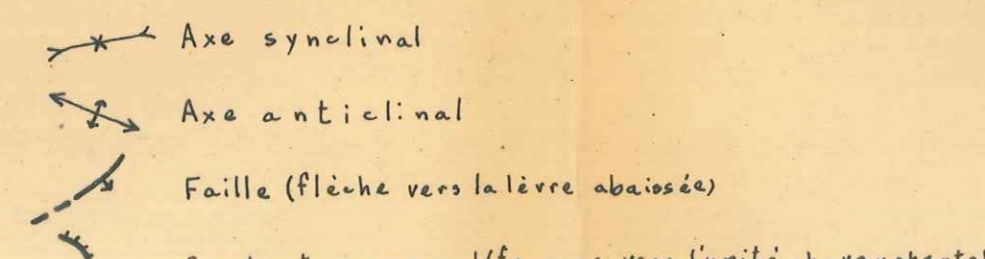 Axe synclinal
Axe anticlinal
Faille (flèche vers la lèvre abaissée)
vers l'unité